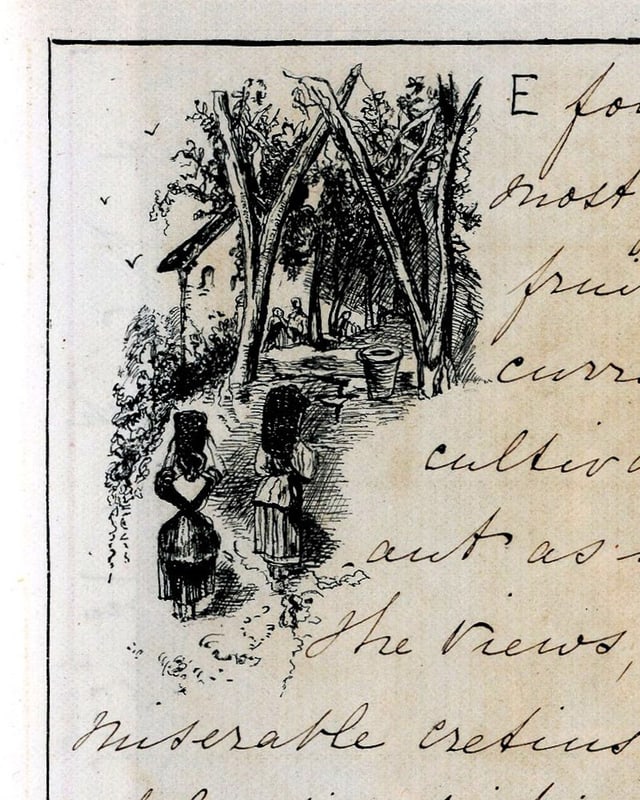 E fo
most
frui
curr
cultiv
ant as
the views,
miserable cretins